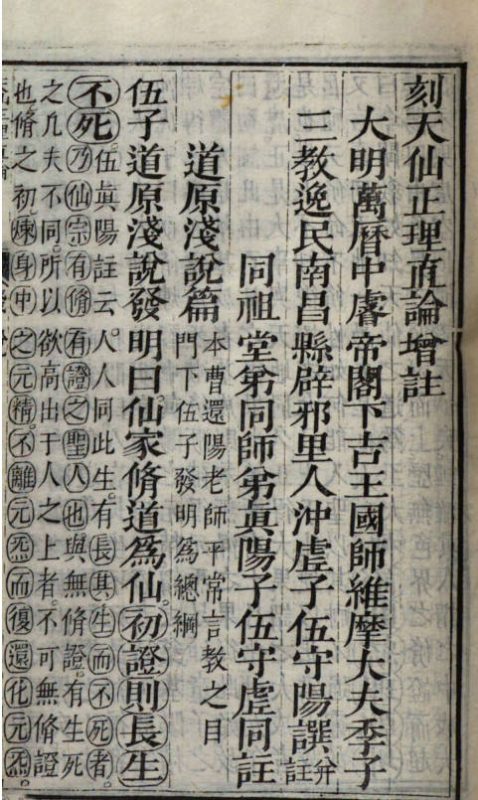 刻天仙正理直論增註
大明萬曆中睿帝閣下吉王國師維摩大夫季子
三教逸民南昌縣辟邪里人沖虛子伍守陽譔并註
同祖堂弟同師弟眞陽子伍守虛同註
道原淺說篇 本曹還陽老師平常言教之目
門下伍子發明爲總綱
伍子道原淺說發明曰仙家脩道爲仙初證則長生
不死 伍眞陽註云人人同此生有長其生而不死者
乃仙宗有脩有證之聖人也與無脩證有生死
之凡夫不同所以欲高出于人之上者不可無脩證
也脩之初煉身中之元精不離元炁而復還化元炁